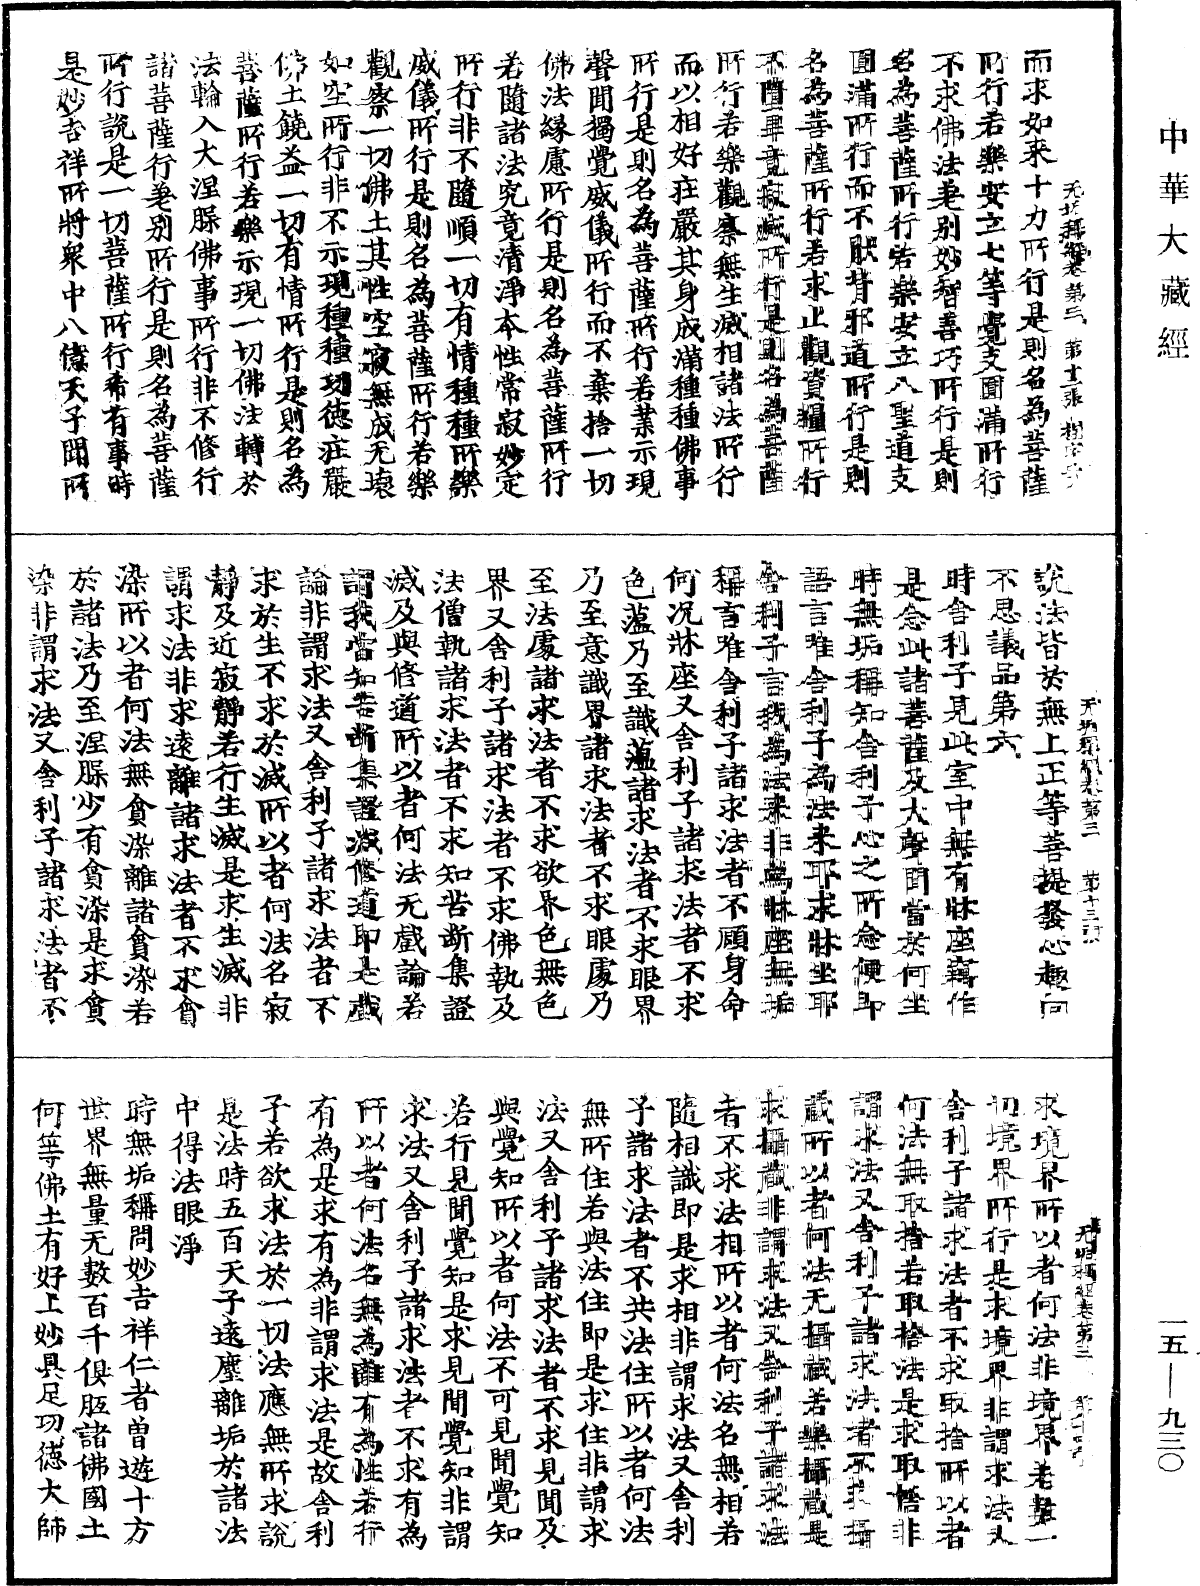 中華大藏經
而求如来十力所行是則名為菩薩
所行若樂安立七等覺支圓滿所行
不求佛法差别妙智善巧所行是則
名為菩薩所行若樂安立八聖道支
圓滿所行而不猒背邪道所行是則
名為菩薩所行若求止觀資糧所行
不墮畢竟寂滅所行是則名為菩薩
所行若樂觀察無生滅相諸法所行
而以相好莊嚴其身成滿種種佛事
所行是則名為菩薩所行若樂示現
聲聞獨覺威儀所行而不棄捨一切
佛法緣慮所行是則名為菩薩所行
若隨諸法究竟清淨本性常寂妙定
所行非不隨順一切有情種種所樂
威儀所行是則名為菩薩所行若樂
觀察一切佛土其性空寂無成无壞
如空所行非不示現種種功德莊嚴
佛土饒益一切有情所行是則名為
菩薩所行若樂示現一切佛法轉於
法輪入大涅槃佛事所行非不修行
諸菩薩行差别所行是則名為菩薩
所行說是一切菩薩所行希有事時
是妙吉祥所將衆中八億天子聞所
說法皆於無上正等菩提發心趣向
不思議品第六
時舍利子見此室中無有牀座竊作
是念此諸菩薩及大聲聞當於何坐
時無垢稱知舍利子心之所念便即
語言唯舍利子為法来耶求牀坐耶
舍利子言我為法来非為牀座無垢
稱言唯舍利子諸求法者不顧身命
何况牀座又舍利子諸求法者不求
色蘊乃至識蘊諸求法者不求眼界
乃至意識界諸求法者不求眼處乃
至法處諸求法者不求欲界色無色
界又舍利子諸求法者不求佛執及
法僧執諸求法者不求知苦断集證
滅及與修道所以者何法无戲論若
謂我當知苦断集證滅修道即是戲
論非謂求法又舍利子諸求法者不
求於生不求於滅所以者何法名寂
靜及近寂靜若行生滅是求生滅非
謂求法非求遠離諸求法者不求貪
染所以者何法無貪染離諸貪染若
於諸法乃至涅槃少有貪染是求貪
染非謂求法又舍利子諸求法者不
求境界所以者何法非境界若數一
切境界所行是求境界非謂求法又
舍利子諸求法者不求取捨所以者
何法無取捨若取捨法是求取捨非
謂求法又舍利子諸求法者不求攝
藏所以者何法无攝藏若樂攝藏是
求攝藏非謂求法又舍利子諸求法
者不求法相所以者何法名無相若
隨相識即是求相非謂求法又舍利
子諸求法者不共法住所以者何法
無所住若與法住即是求住非謂求
法又舍利子諸求法者不求見聞及
與覺知所以者何法不可見聞覺知
若行見聞覺知是求見聞覺知非謂
求法又舍利子諸求法者不求有為
所以者何法名無為離有為性若行
有為是求有為非謂求法是故舍利
子若欲求法於一切法應無所求說
是法時五百天子遠塵離垢於諸法
中得法眼淨
時無垢稱問妙吉祥仁者曾遊十方
世界無量无數百千俱胝諸佛國土
何等佛土有好上妙具足功德大師
一五—九三〇